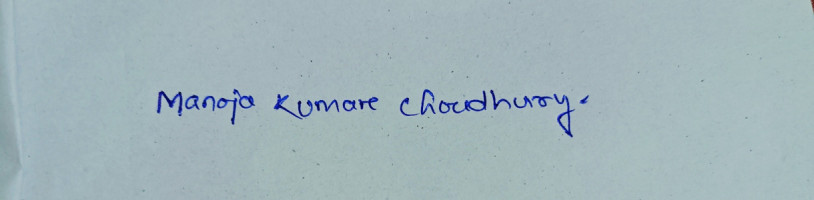 Manoja Kumare Choudhury.